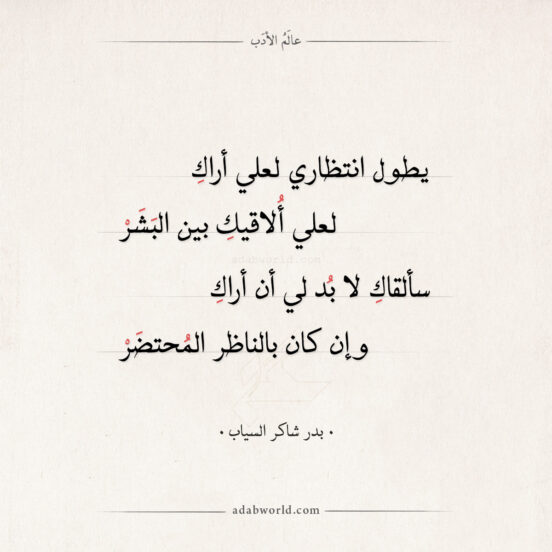 عالَمُ الأدَب
يطول انتظاري لعلي أراكِ
لعلي أُلاقيكِ بين البَشَرْ
adabworld.com
سألقاكِ لا بُد لي أن أراكِ
وإن كان بالناظر المُحتضَرْ
• بدر شاكر السياب •
adabworld.com